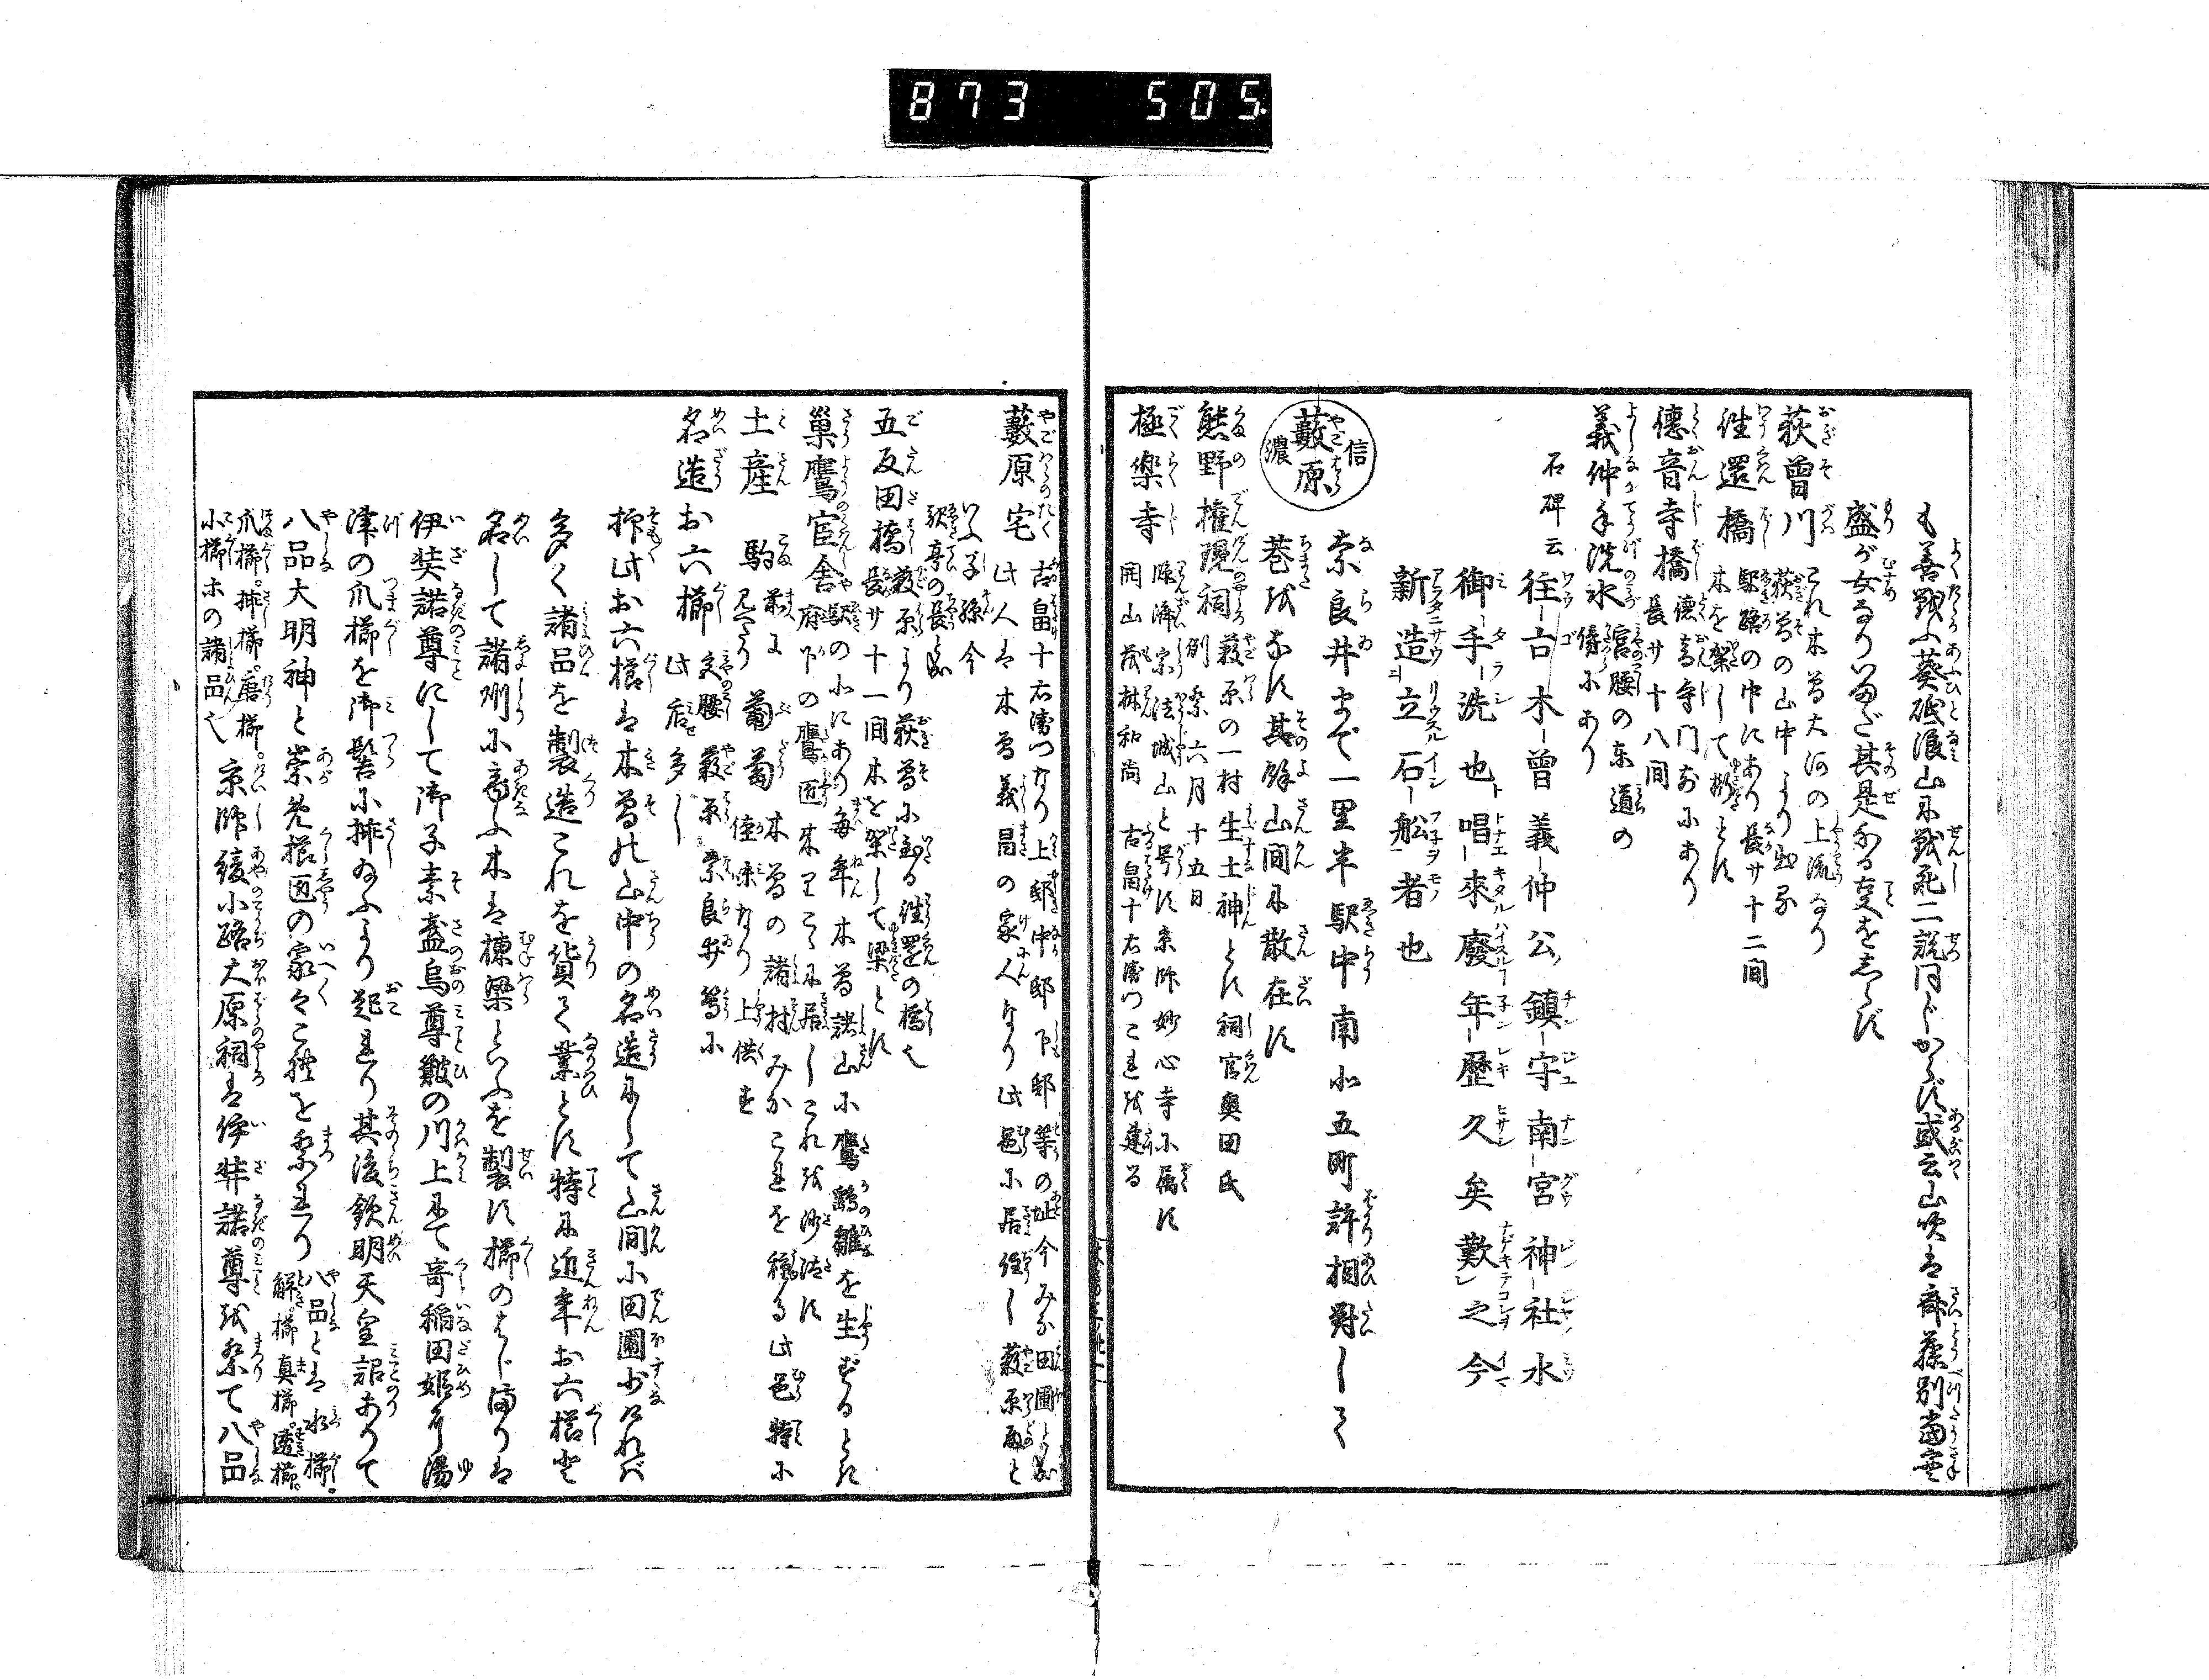 873 505
も善戦ふ葵砥浪山に戦死二説同じからず或云山吹は斎藤別当実
盛が女なりいまだ其是非る支をしらず
荻曽川 これ木曽大河の上流なり
荻曽の山中より出る
往還橋 駅路の中にあり長サ十二間
木を架して橋とす
徳音寺橋 徳音寺門前にあり
長サ十八間
義仲手洗水 宮腰の東道の
傍にあり
石碑云
往古木曾義仲公鎮守南宮神社水
御手洗也ト唱來廢年歷久矣歎之今
新造立石船者也
信濃 藪原
奈良井まで一里半駅中南北五町許相対して
巷をなす其餘山間に散在す
熊野権現祠 藪原の一村生土神とす祠官奥田氏
例祭六月十五日
極楽寺 臨済宗法城山と号す京師妙心寺に属す
開山茂林和尚 古畠十右衛門これを建る
藪原宅 古畠十右衛門なり上邸中邸下邸等の址今みな田圃となる
此人は木曽義昌の家人なり此邑に居住し藪原殿と
いふ子孫今
駅亭の長となる
五反田橋 藪原より荻曽に至る往還の橋也
長サ十一間木を架して梁とす
巣鷹官舎 駅の北にあり毎年木曽諸山に鷹鷂雛を生ずるとき
府下の鷹匠来りこゝに居しこれを沙汰す
土産 駒 前に見へたり 葡萄 木曽の諸村みなこれを種る此邑特に
佳味なり上供す
名造お六櫛 宮腰藪原奈良井等に
此店多し
抑此お六櫛は木曽の山中の名造にして山間に田圃少なければ
多く諸品を製造これを貨て業とす特に近年お六櫛と
名して諸州に商ふ木は棟梁といふを製す櫛のはじまりは
伊弉諾尊にして御子素盞烏尊簸の川上にて奇稲田姫を湯
津の爪櫛を御髻に挿給ふより起れり其後欽明天皇詔ありて
八品大明神と崇め櫛匠の家々これを祭れり 八品とは水櫛。
解櫛。真櫛。透櫛。
爪櫛。挿櫛。唐櫛。
小櫛ホの諸品也 京師綾小路大原祠は伊弉諾尊を祭て八品